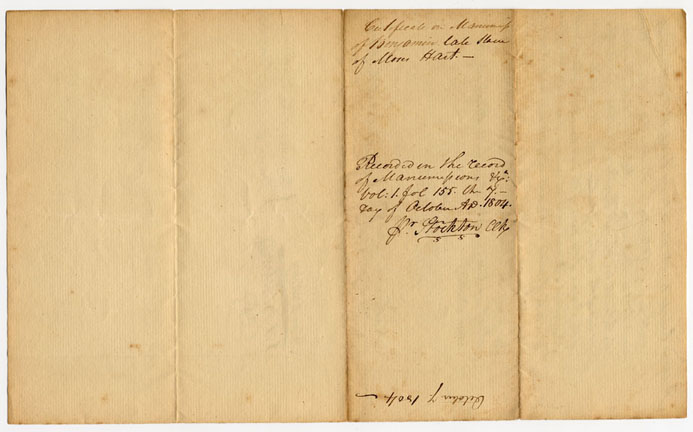 Certificate on Manumis
of Benjamin late Slave
of Moses Hart. —
Recorded in the record
of Manumissions &ca:
Vol: 1. fol 155. the 7. —
day of October AD. 1804.
pr. Stockton Clk
October 7 1804 —